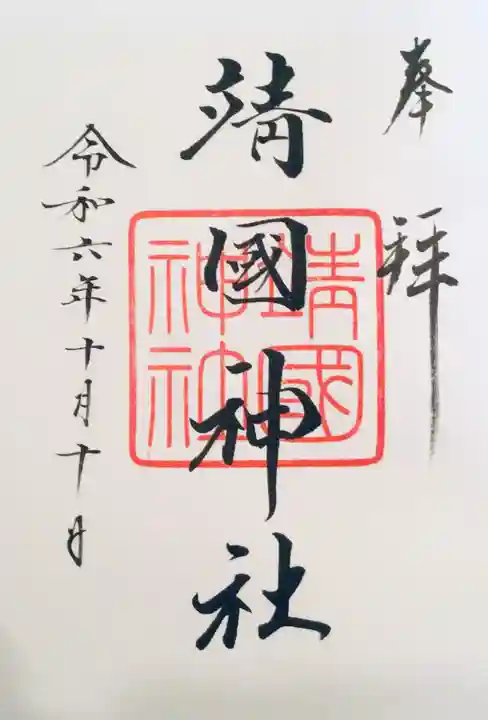 奉拝
靖國神社
靖国神社
令和六年十月十日